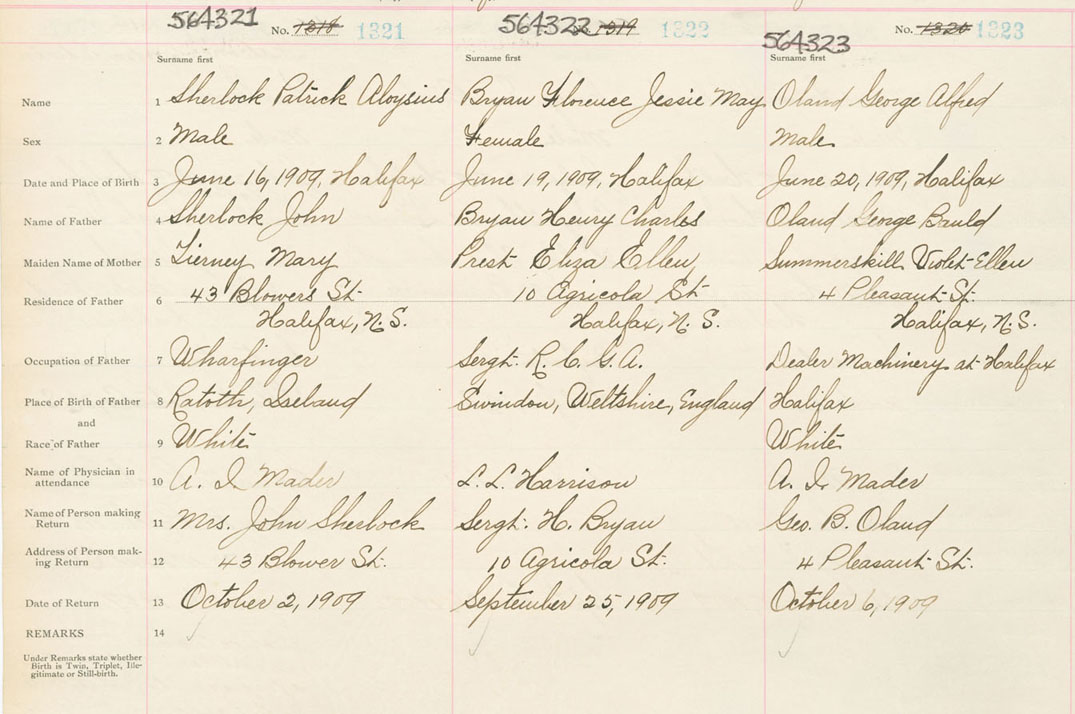 564321 No. 1318 1321 564322 1319 1322 564323 No. 1320 1323
Surname first Surname first Surname first
Name 1 Sherlock Patrick Aloysius Bryan Florence Jessie May Oland George Alfred
Sex 2 Male Female Male
Date and Place of Birth 3 June 16, 1909, Halifax June 19, 1909, Halifax June 20, 1909, Halifax
Name of Father 4 Sherlock John Bryan Henry Charles Oland George Bauld
Maiden Name of Mother 5 Tierney Mary Prest Eliza Ellen Summerskill Violet Ellen
Residence of Father 6 43 Blowers St. 10 Agricola St 4 Pleasant St.
Halifax, N.S. Halifax, N.S. Halifax, N.S.
Occupation of Father 7 Wharfinger Sergt. R.C.G.A. Dealer Machinery at Halifax
Place of Birth of Father 8 Ratoth, Ireland Swindon, Weltshire, England Halifax
and
Race of Father 9 White White
Name of Physician in
attendance 10 A. I. Mader L. L. Harrison A. I. Mader
Name of Person making
Return 11 Mrs. John Sherlock Sergt. H. Bryan Geo. B. Oland
Address of Person mak-
ing Return 12 43 Blower St. 10 Agricola St. 4 Pleasant St.
Date of Return 13 October 2, 1909 September 25, 1909 October 6, 1909
REMARKS 14
Under Remarks state whether
Birth is Twin, Triplet, Ille-
gitimate or Still-birth.